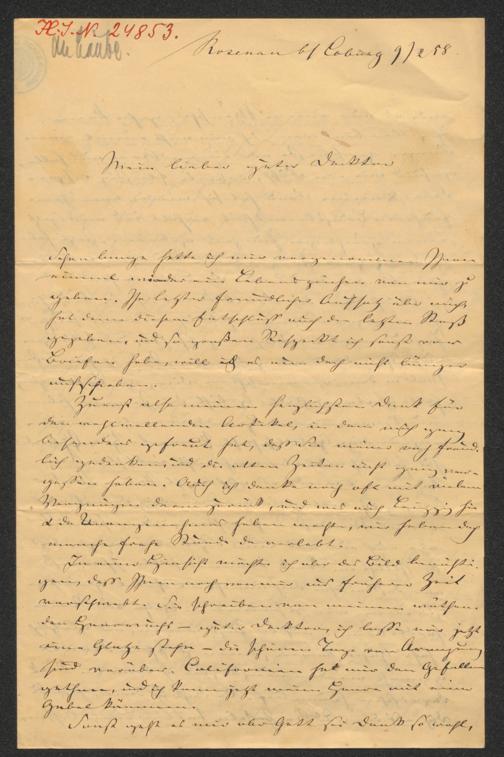 H.I.N. 24853.
An Laube.
Rosenau b/ Coburg 9/2 58.
Mein lieber guter Doktor
Schon lange hatte ich mir vorgenommen Ihnen
einmal wieder ein Lebenszeichen von mir zu
geben. Ihr letzter freundlicher Aufsatz über mich
hat denn diesem Entschluß auch den letzten Stoß
gegeben, und so großen Respekt ich sonst vor
Briefen habe, will ich es nun doch nicht länger
aufschieben.
Zuerst also meinen herzlichsten Dank für
den wohlwollenden Artikel, in dem mich ganz
besonders gefreut hat, daß Sie meiner noch freund-
lich gedenken, und die alten Zeiten nicht ganz ver-
gessen haben. Auch ich denke noch oft mit vielem
Vergnügen daran zurück, und was auch Leipzig für
haben mochte, wir haben doch
manche frohe Stunde da verlebt.
In einer Hinsicht möchte ich aber das Bild berichti-
gen, daß Ihnen noch von mir aus früherer Zeit
vorschwebt. Sie schreiben von meinem
den Haarwuchs – guter Doktor, ich lasse mir jetzt
eine Glatze stehn – die schönen Tage von Aranjuez
sind vorüber. Californien hat mir den Gefallen
gethan, und ich kann jetzt meine Haare mit einer
Gabel kämmen.
Sonst geht es mir aber Gott sei Dank so wohl,